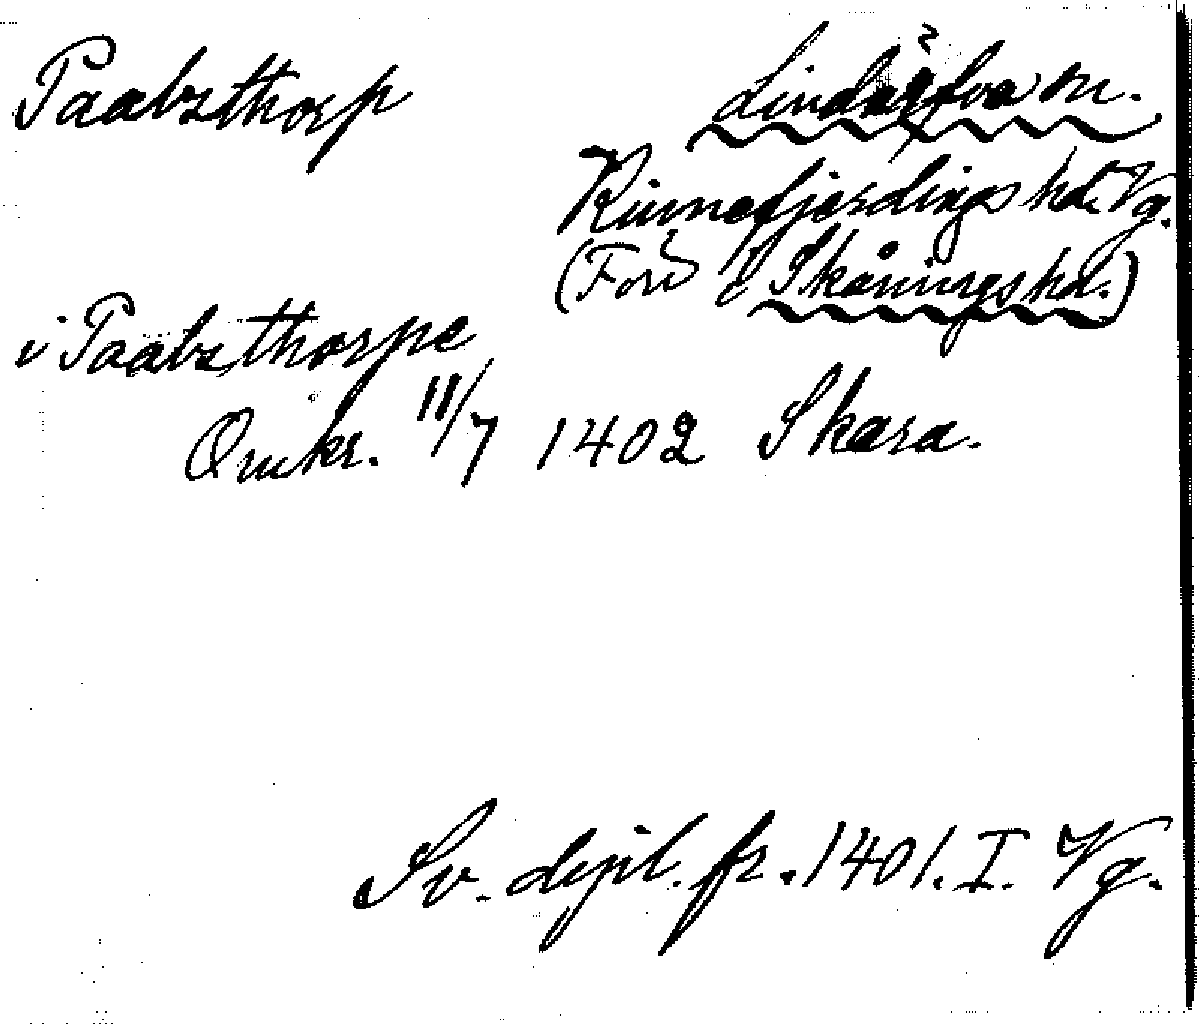 Paabzthorp
Lindärfva sn.
Kinnefjerdings hd. Vg.
(Ford i Skånings hd.)
i Paabzthorpe
Omkr. 11/7 1402 Skara.
Sv. dipl. fr. 1401. I. Vg.